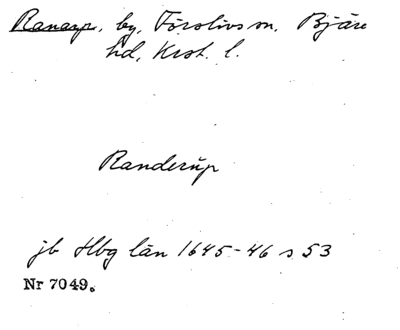 Ranarp, by, Förslövs sn, Bjäre
hd, Krst. l.
Randerup
jb Hbg län 1645-46 s 53
Nr 7049.